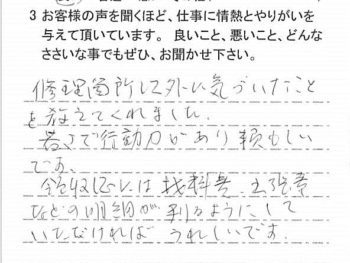 3 お客様の声を聞くほど、仕事に情熱とやりがいを
与えて頂いています。 良いこと、悪いこと、どんな
ささいな事でもぜひ、お聞かせ下さい。
修理箇所以外に気づいたこと
を教えてくれました。
若さで行動力があり頼もしい
です。
には材料費、工賃等
などの明細が判るようにして
いただければうれしいです。